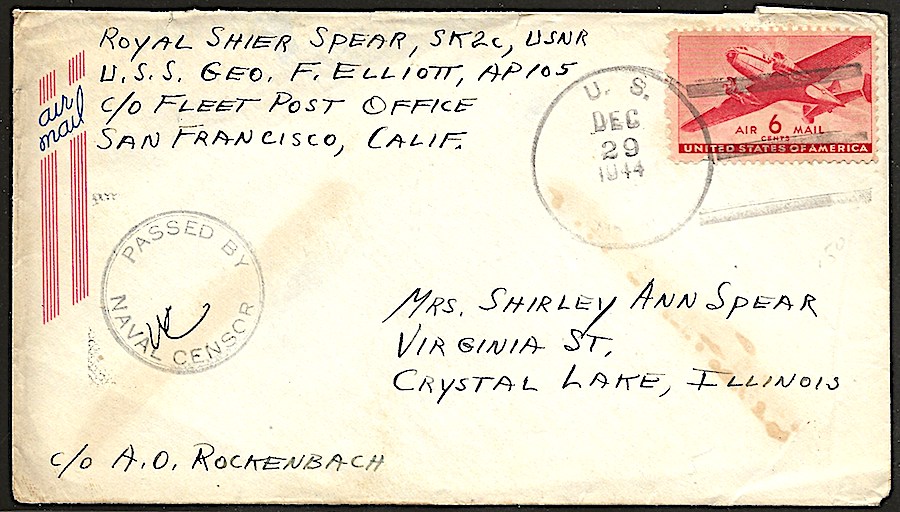 ROYAL SHIER SPEAR, SK2c, USNR
U.S.S. GEO. F. ELLIOTT, AP105
c/o FLEET POST OFFICE
SAN FRANCISCO, CALIF.
air
mail
U. S.
DEC
29
1944
AIR 6 MAIL
CENTS
UNITED STATES OF AMERICA
PASSED BY
NAVAL CENSOR
MRS. SHIRLEY ANN SPEAR
VIRGINIA ST,
CRYSTAL LAKE, ILLINOIS
c/o A.O. ROCKENBACH